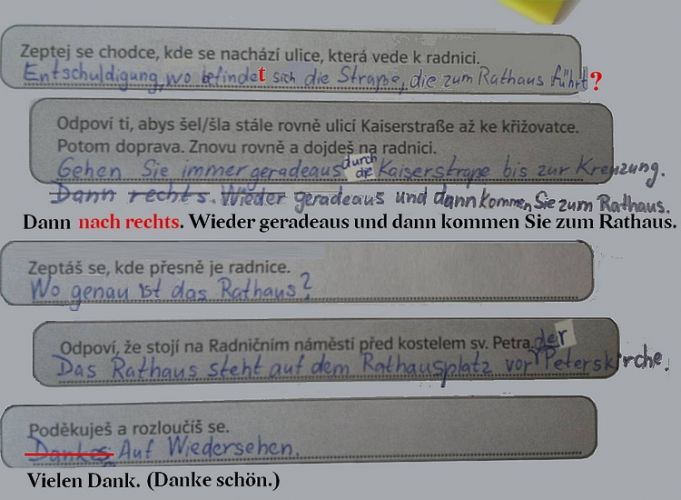 Zeptej se chodce, kde se nachází ulice, která vede k radnici.
Entschuldigung, wo befindet sich die Straße, die zum Rathaus führt?
Odpoví ti, abys šel/šla stále rovně ulicí Kaiserstraße až ke křižovatce.
Potom doprava. Znovu rovně a dojdeš na radnici.
Gehen Sie immer geradeaus durch die Kaiserstraße bis zur Kreuzung.
Dann rechts. Wieder geradeaus und dann kommen Sie zum Rathaus.
Dann nach rechts. Wieder geradeaus und dann kommen Sie zum Rathaus.
Zeptáš se, kde přesně je radnice.
Wo genau ist das Rathaus?
Odpoví, že stojí na Radničním náměstí před kostelem sv. Petra.
Das Rathaus steht auf dem Rathausplatz vor der Peterskirche.
Poděkuješ a rozloučíš se.
Dankes Auf Wiedersehen.
Vielen Dank. (Danke schön.)